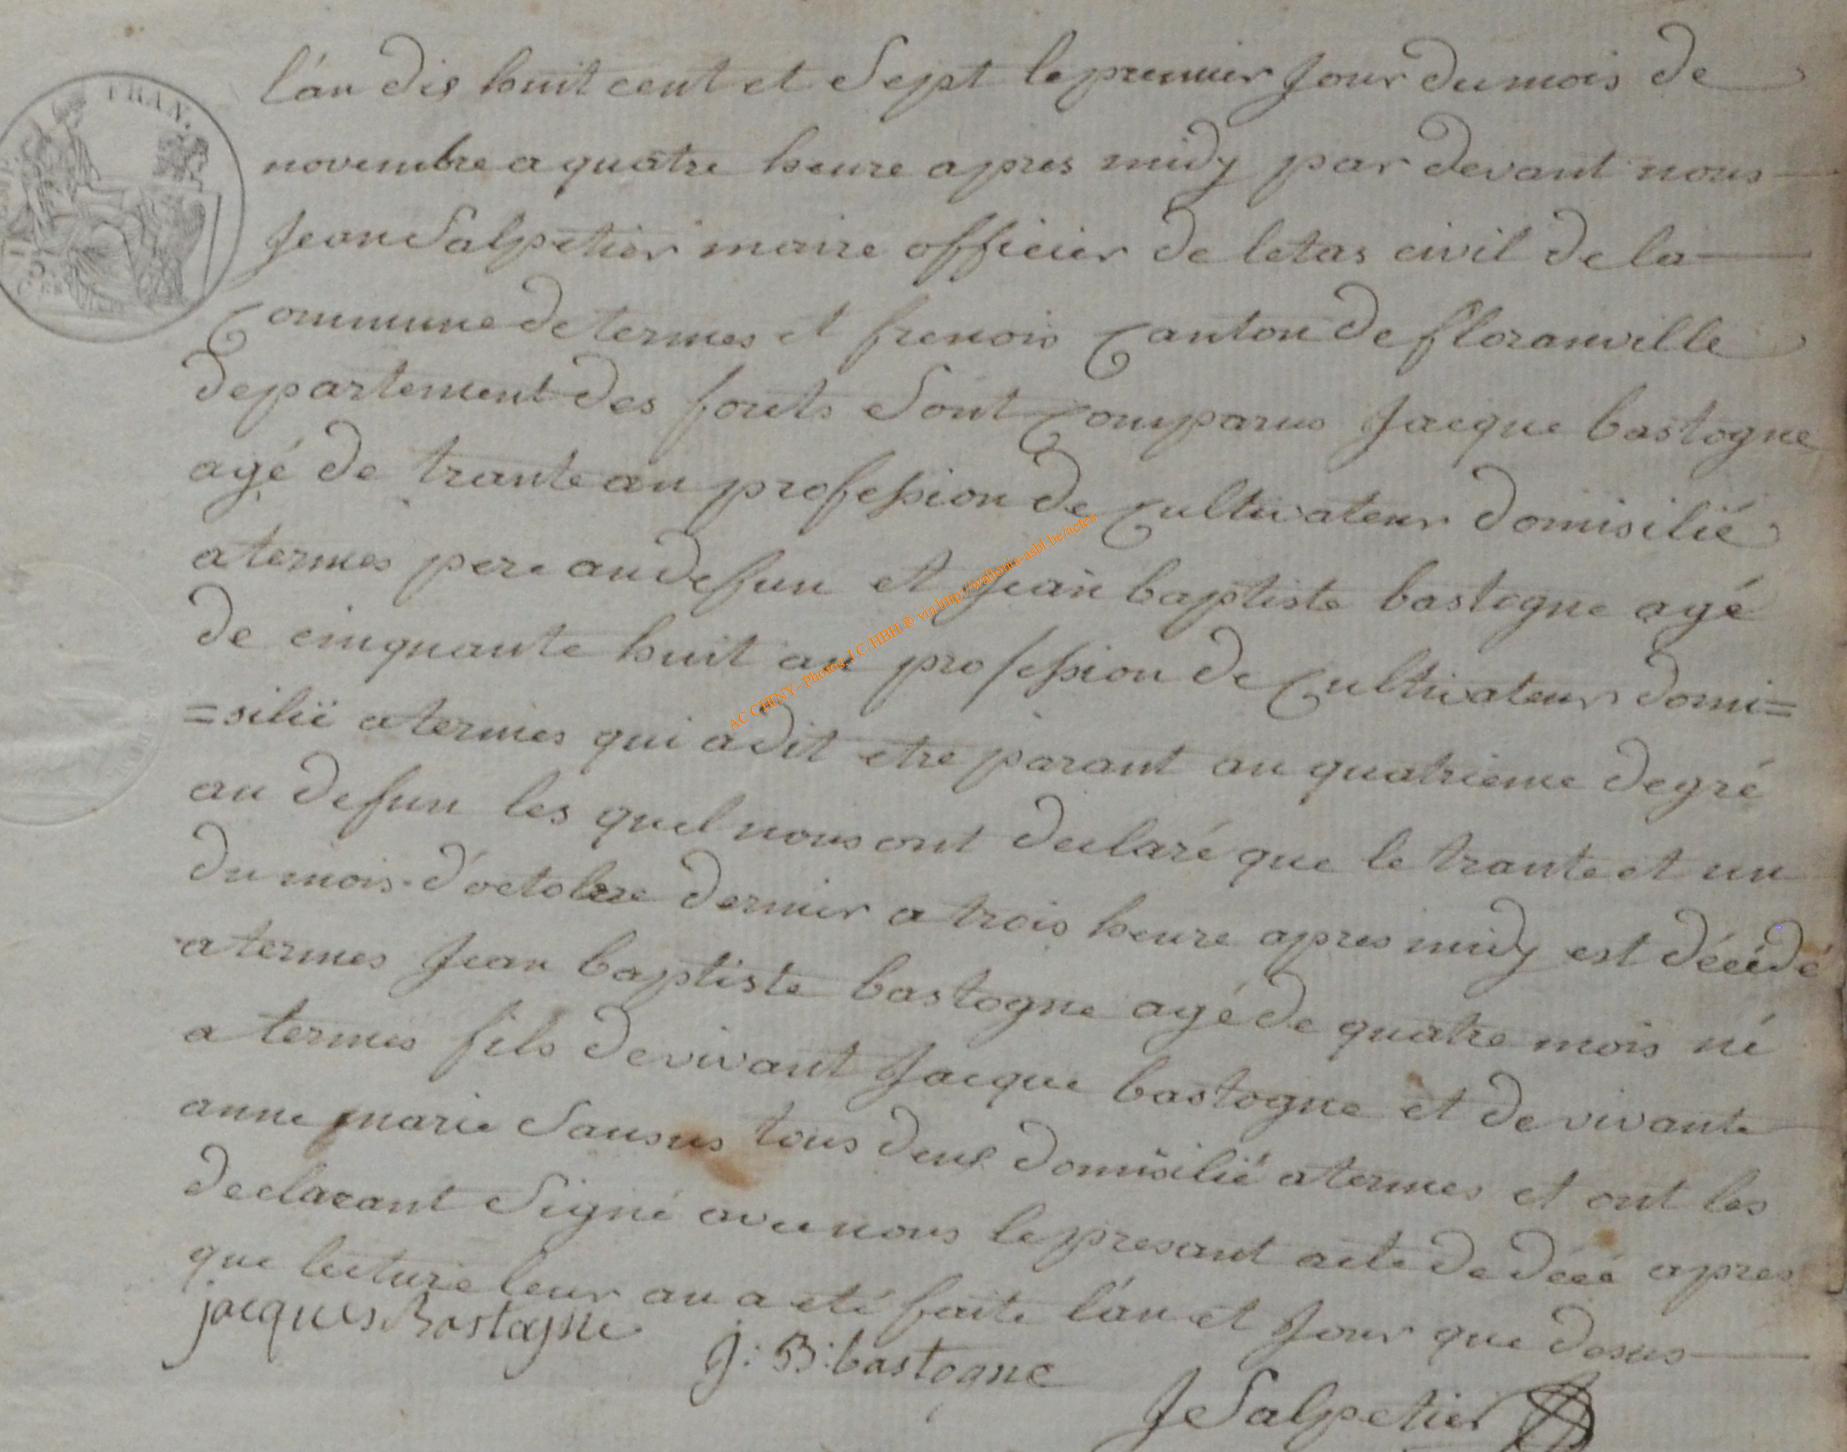 l'án dis huit cent et Sept le premier Jour du mois de
novembre a quatre heure apres midy par devant nous
Jean Salpetier maire officier de letas civil de la
Commune de termes et frenois Canton de floranville
departement des forets Sont Comparus Jacque bastogne
agé de trante an profession de Cultivateur domisilié
a termes pere au defun et Jean baptiste bastogne agé
de cinquante huit an profession de Cultivateur domi=
=silié a termes qui a dit etre parant au quatrieme degré
au defun les quel nous ont declaré que le trante et un
du mois d'octobre dernier a trois heure apres midy est décédé
a termes Jean baptiste bastogne agé de quatre mois né
a termes fils de vivant Jacque bastogne et de vivante
anne marie Sausus tous deux domisilié a termes et ont les
declarant Signé avec nous le presant acte de décé apres
que lecture leur an a eté faite l'án et Jour que desus
jacques Bastogne
J: B: bastogne
J Salpetier
FRAN.
AC CHINY- Photos J C HBH @ via http://wallonia-asbl.be/actes